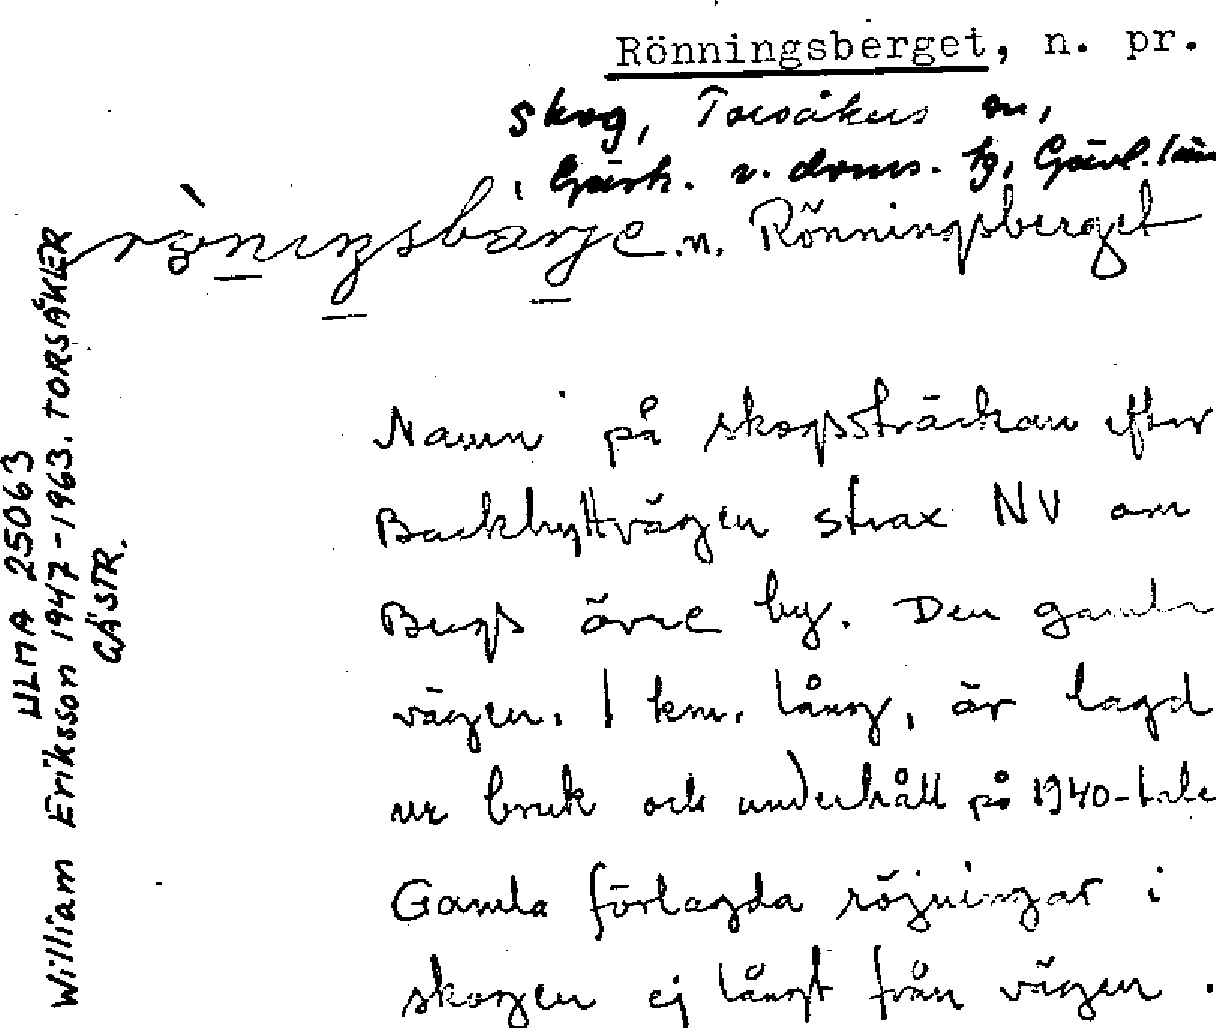 Rönningsberget, n. pr.
Skog, Torsåkers sn,
Gästr. v. doms. tg, Gävl. län
n. Rönningsberget
Namn på skogssträckan efter
Backhyttvägen strax NV om
Bergs övre by. Den gamla
vägen, 1 km. lång, är lagd
ur bruk och underhåll på 1940-tale
Gamla förlagda röjningar i
skogen ej långt från vägen.
ULMA 25063
William Eriksson 1947-1963. TORSÅKER
GÄSTR.